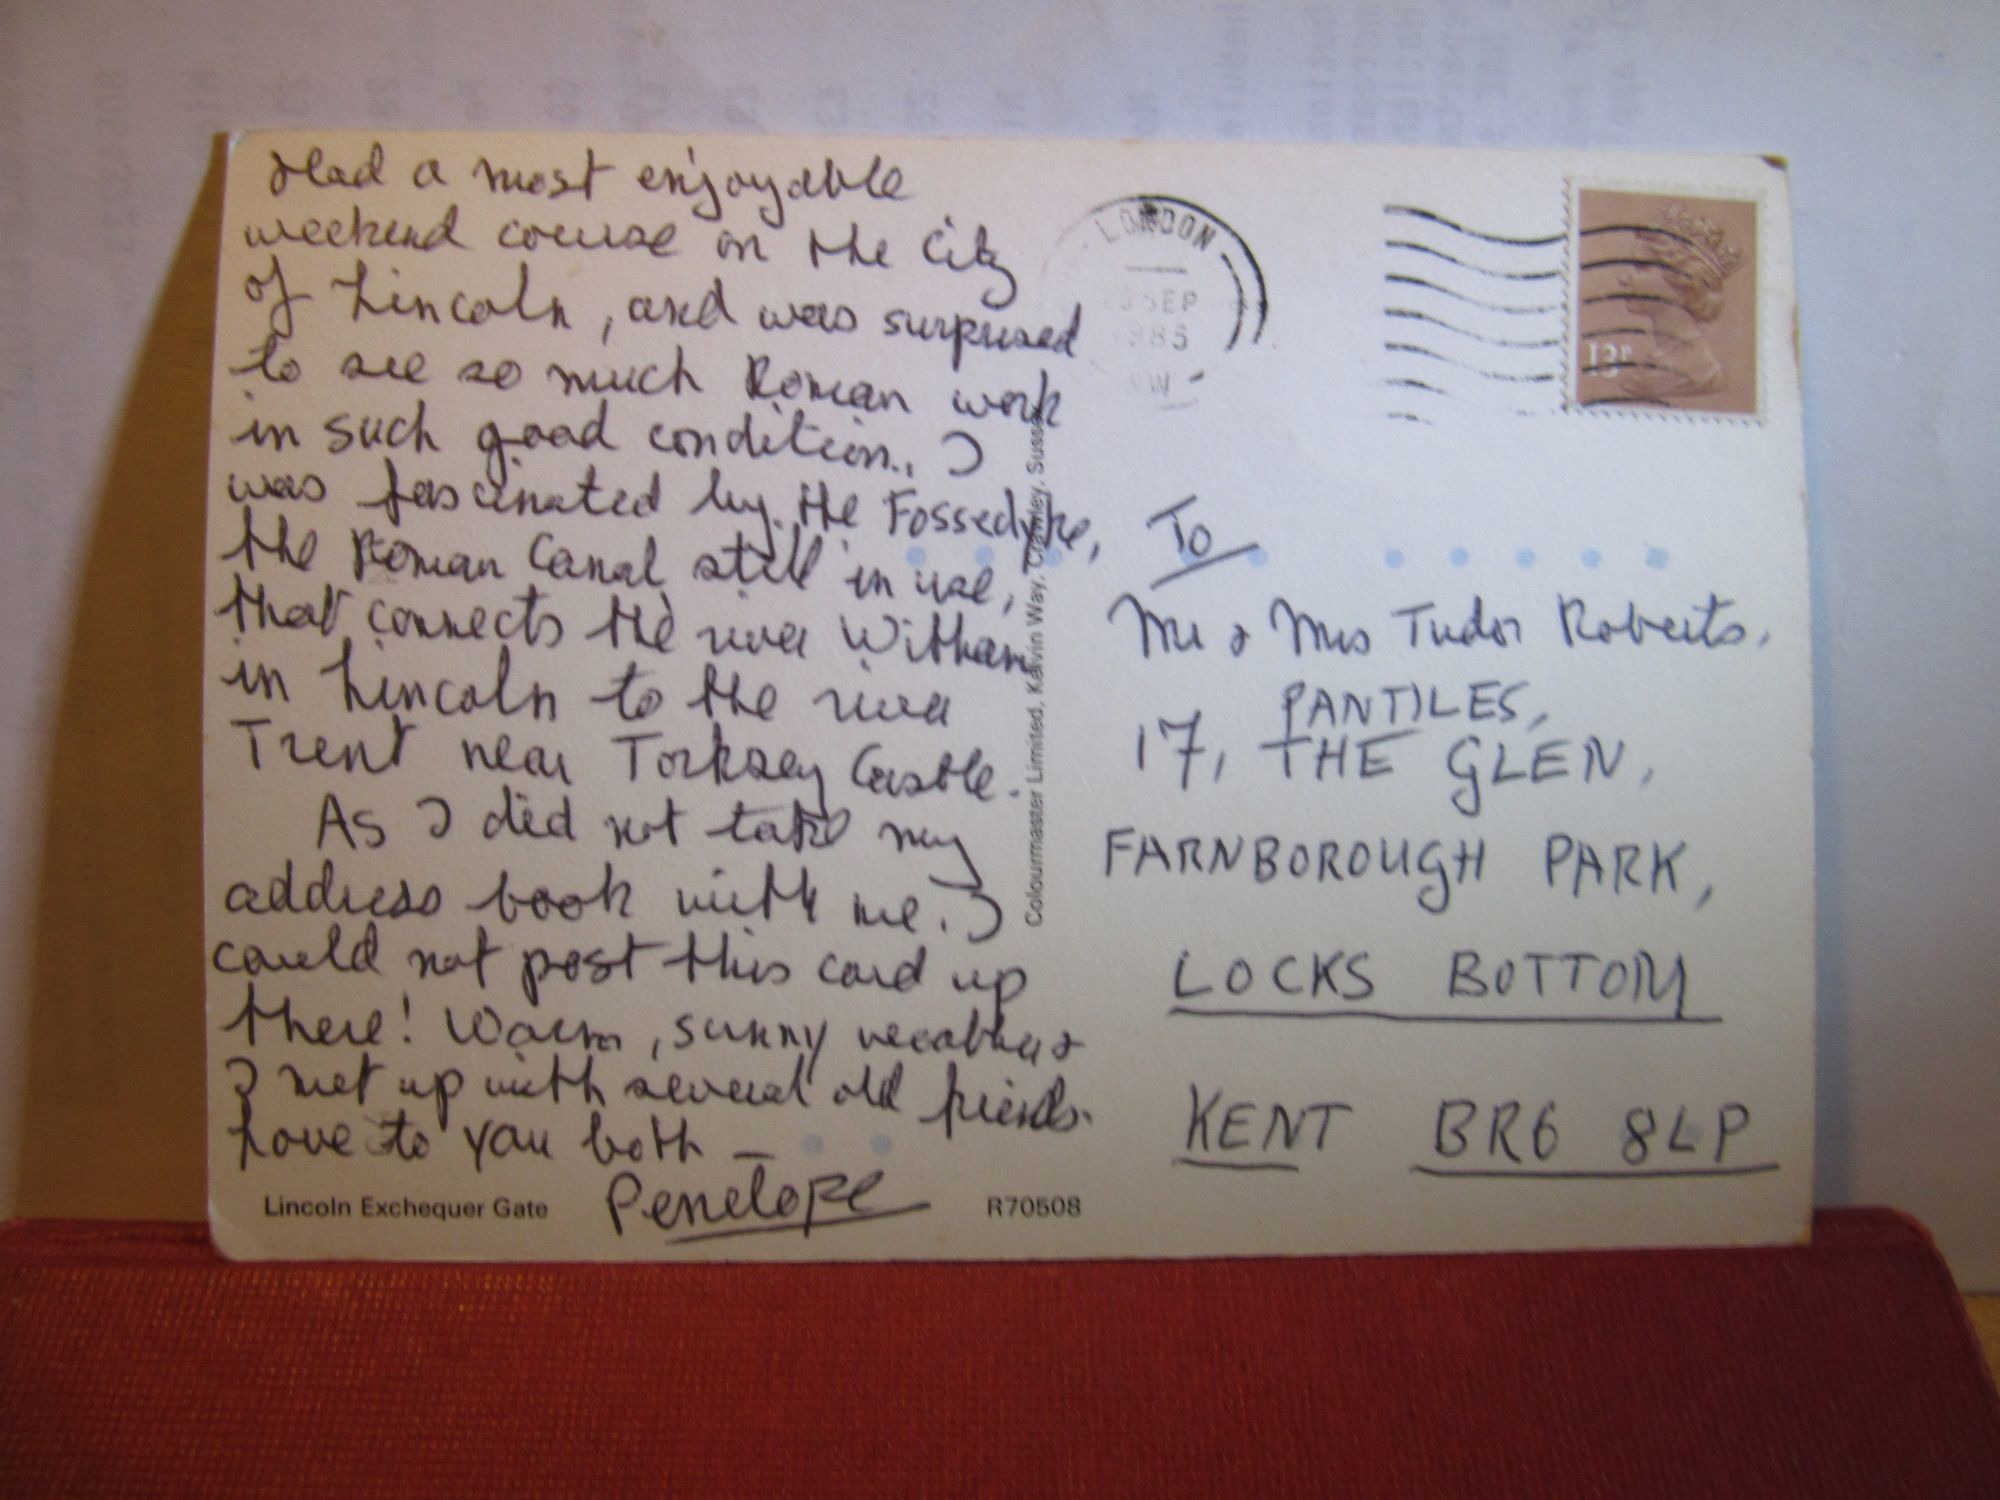 Had a most enjoyable
weekend course on the City
of Lincoln, and was surprised
to see so much Roman work
in such good condition. I
was fascinated by the Fossedyke,
the Roman Canal still in use,
that connects the river Witham
in Lincoln to the river
Trent near Torksey Castle.
As I did not take my
address book with me. I
could not post this card up
there! Warm, sunny weather &
I met up with several old friends.
Love to you both —
Penelope
Lincoln Exchequer Gate
R70508
Colourmaster Limited, Kelvin Way, Crawley, Sussex
LONDON
SEP
To
Mr & Mrs Tudor Roberts,
PANTILES,
17, THE GLEN,
FARNBOROUGH PARK,
LOCKS BOTTOM
KENT BR6 8LP